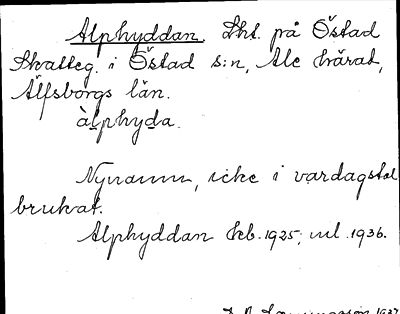 Alphyddan. Lht. på Östad
Skatteg. i Östad s:n, Ale härad,
Älfsborgs län.
àlphyda.
Nynamn, icke i vardagstal
brukat.
Alphyddan keb. 1925; uul. 1936.
1937